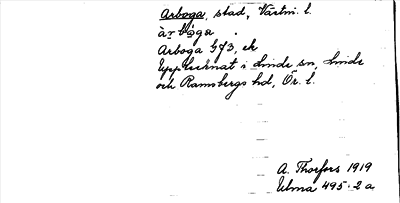 Arboga, stad, Västm. l.
àr bǫga
Arboga G73, ek
Upptecknat i Linde sn, Linde
och Ramsbergs hd, Ör. l.
A. Thorfors 1919
Ulma 495:2 a